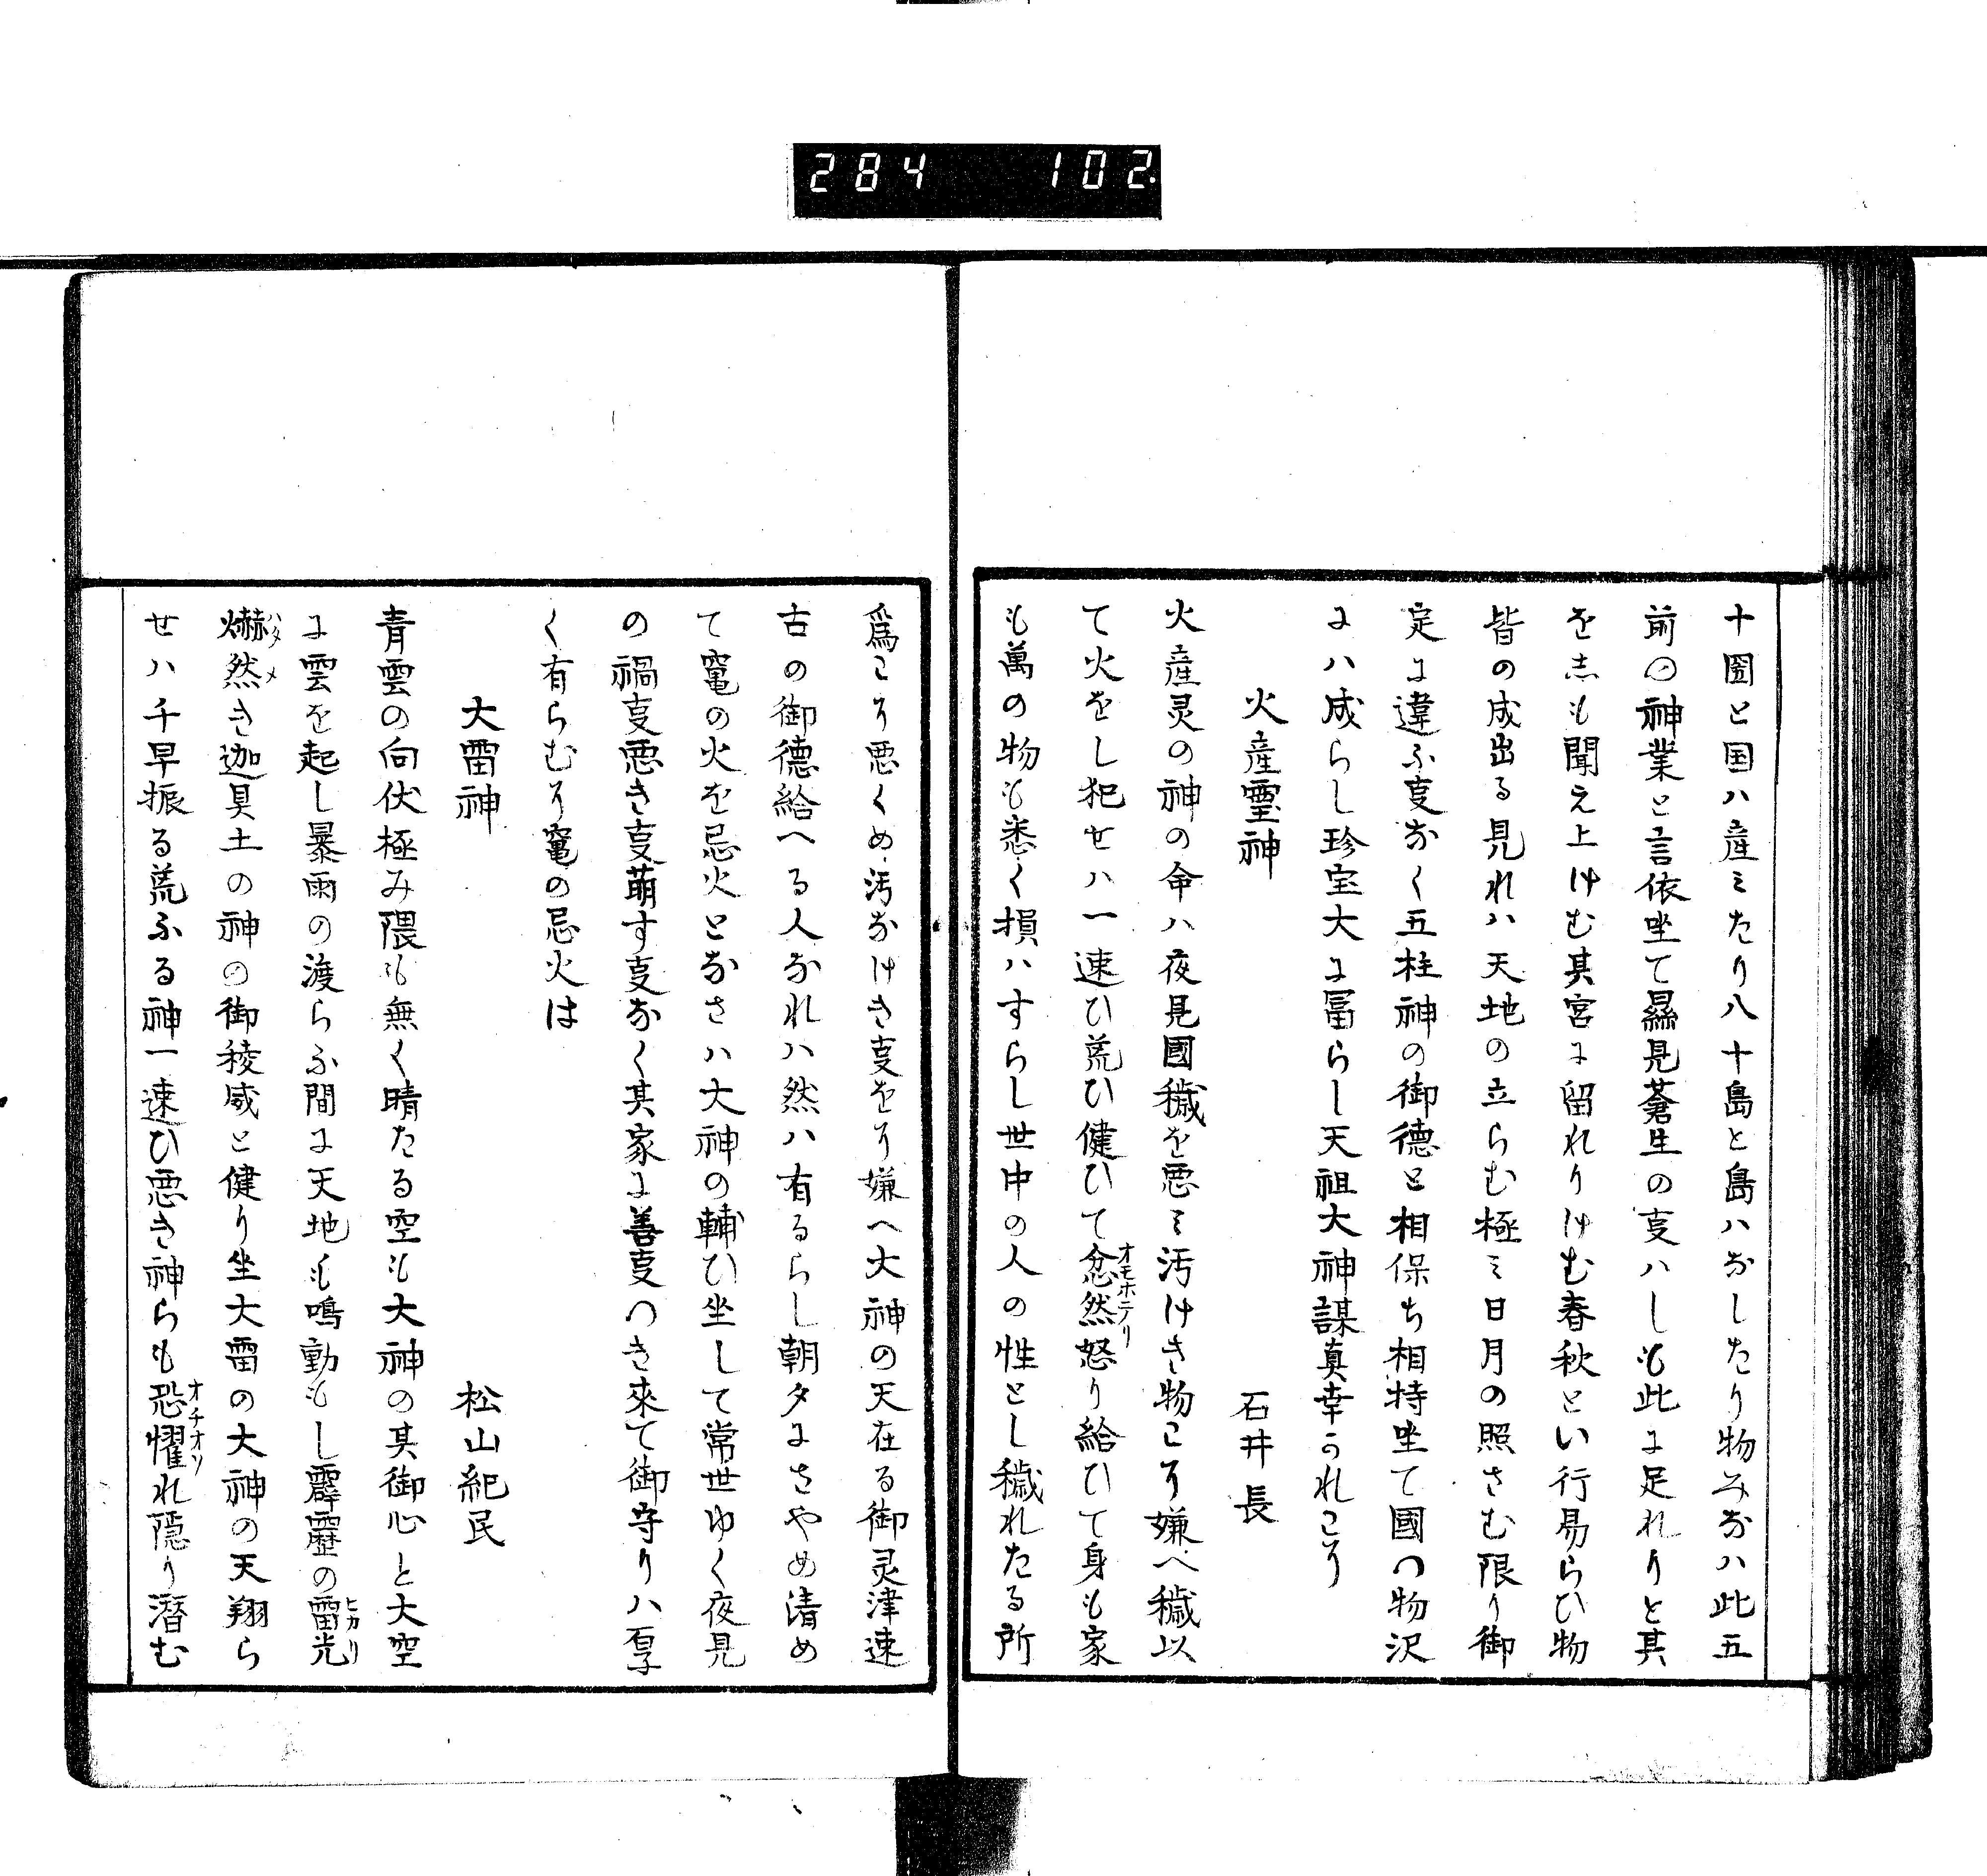 284 102.
十圀と国ハ産ミたり八十島と島ハなしたり物みなハ此五
前の神業と言依坐て㬎見蒼生の㕝ハしも此に足れりと其
を志も聞え上けむ其宮に留れりけむ春秋とい行易らひ物
皆の成出る見れハ天地の立らむ極ミ日月の照さむ限り御
定に違ふ㕝なく五柱神の御德と相保ち相特坐て國つ物沢
にハ成らし珍宝大に冨らし天祖大神謀真幸かれこそ
火産霊神
石井長
火産灵の神の命ハ夜見國穢を悪ミ汚けき物こそ嫌へ穢以
て火をし犯せハ一速ひ荒ひ健ひて忿然怒り給ひて身も家
オモホテリ
も萬の物も悉く損ハすらし世中の人の性とし穢れたる所
爲こそ悪くめ汚なけき㕝をそ嫌へ大神の天在る御灵津速
古の御德給へる人なれハ然ハ有るらし朝夕にさやめ清め
て竃の火を忌火となさハ大神の輔ひ坐して常世ゆく夜見
の禍㕝悪き㕝萌す㕝なく其家に善㕝つき來て御守りハ厚
く有らむそ竃の忌火は
大雷神
松山紀民
青雲の向伏極み隈も無く晴たる空も大神の其御心と大空
に雲を起し暴雨の渡らふ間に天地も鳴動もし霹靂の雷光
ヒカリ
爀然き迦具土の神の御稜威と健り坐大雷の大神の天翔ら
ハタメ
せハ千早振る荒ふる神一速ひ悪き神らも恐懼れ隠り潜む
オチオソ